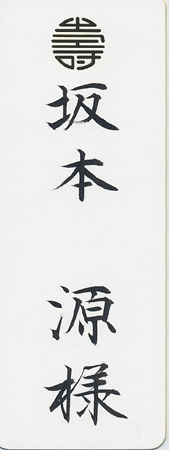 壽
坂本 源様